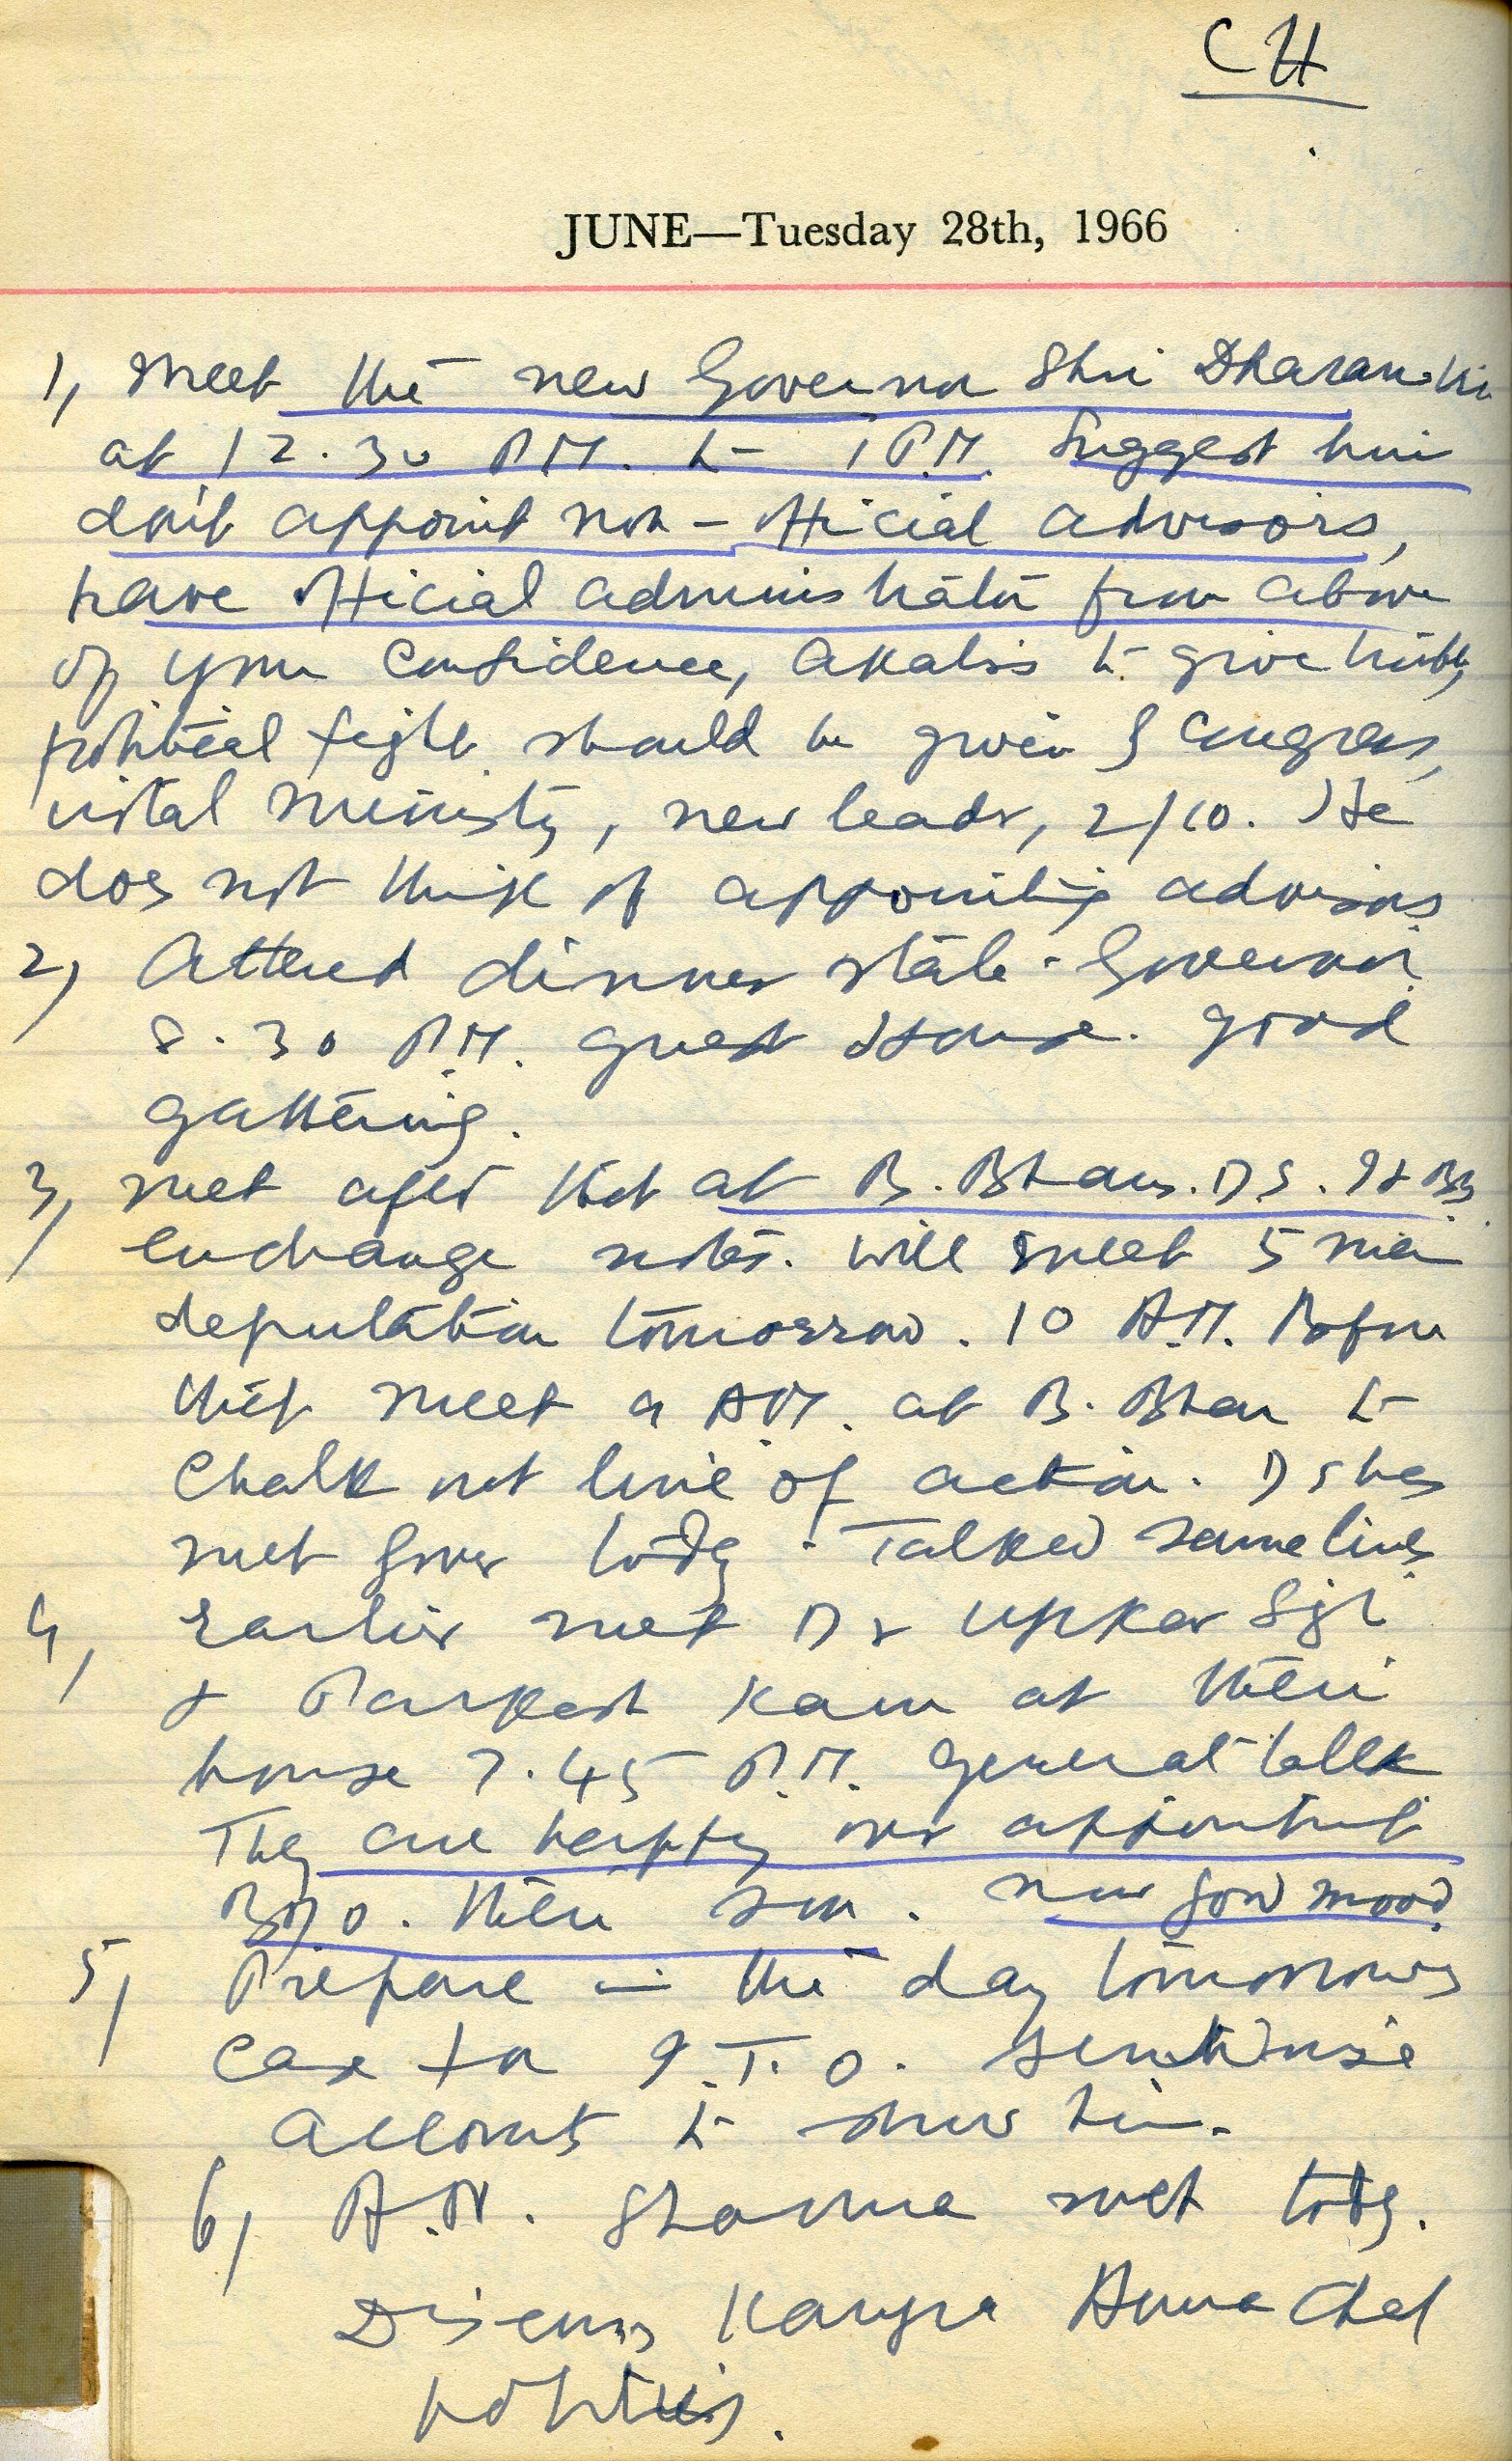 CH
JUNE—Tuesday 28th, 1966
1, Meet the new Governor Shri
at 12.30 P.M. to 1 P.M. Suggest him
don't appoint non-official advisors,
have official administrator from above
of your confidence, Akalis to give trouble,
political fight should be given by Congress,
vital Ministry, new leader, 2/10. He
does not think of appointing advisors
2, Attend dinner state Governor
8.30 P.M. guest House. good
gathering.
3, met after that at B. Bhan. DS.
exchange notes. will meet 5 men
deputation tomorrow. 10 A.M. Before
that meet 9 AM. at B. Bhan to
chalk out line of action. DS has
met Gover today. Talked same lines
4, Earlier met Dr Upkar Sgh
& Parkash Kaur at their
house 7.45 P.M. general talk
They are happy over appointment
BDO. their son. now good mood
5, Prepare in the day tomorrows
case for I.T.O.
accounts to show him.
6, A.N. Sharma met today.
Discuss Kangra Himachal
politics.